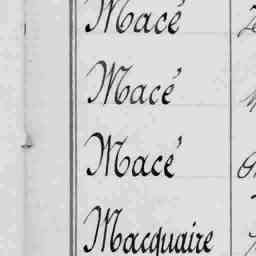 Macé
Macé
Macé
Macquaire